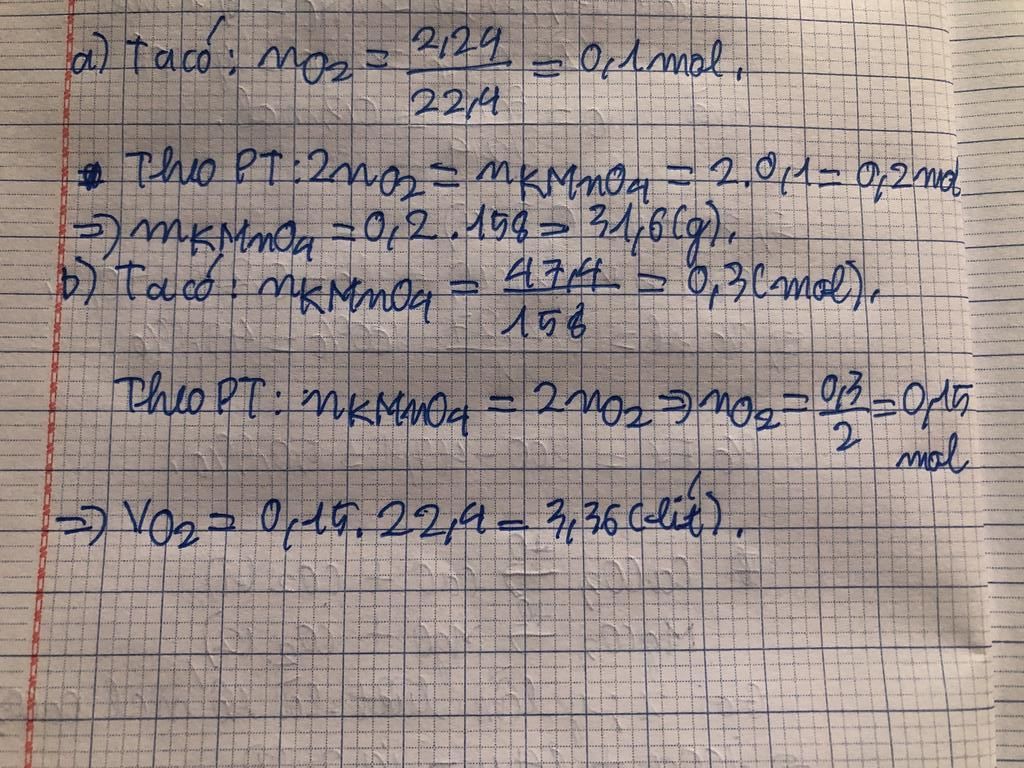 a) Ta có: nO₂ = 2,24/22,4 = 0,1 mol.
Theo PT: 2nO₂ = nKMnO₄ = 2.0,1 = 0,2 mol
=> mKMnO₄ = 0,2 . 158 = 31,6 (g).
b) Ta có: nKMnO₄ = 47,4/158 = 0,3 (mol).
Theo PT: nKMnO₄ = 2nO₂ => nO₂ = 0,3/2 = 0,15 mol
=> VO₂ = 0,15.22,4 = 3,36 (lít).